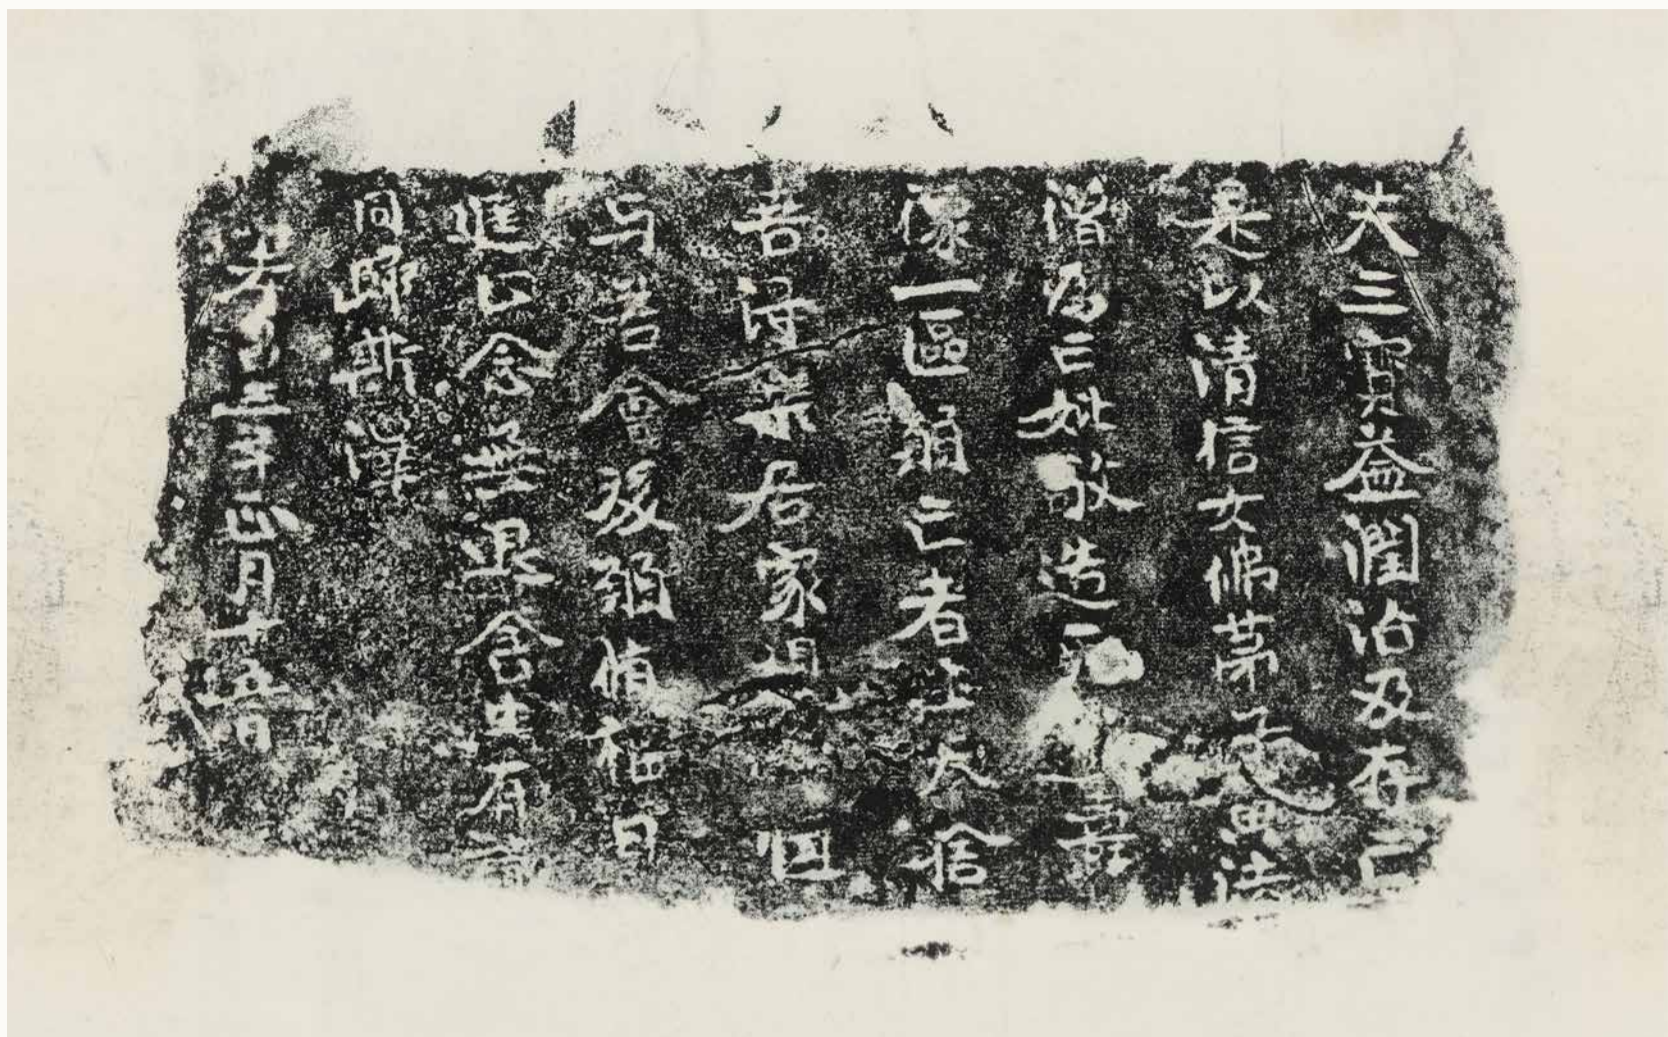 夫三寶益潤洽及存亡
是以清信女佛弟子黃法
僧為亡妣敬造无量壽
像一區願亡者生天捨
苦得樂居家恒
与善會後願脩日
進口念無退含生有
同歸斯澤
孝昌三年正月十五日